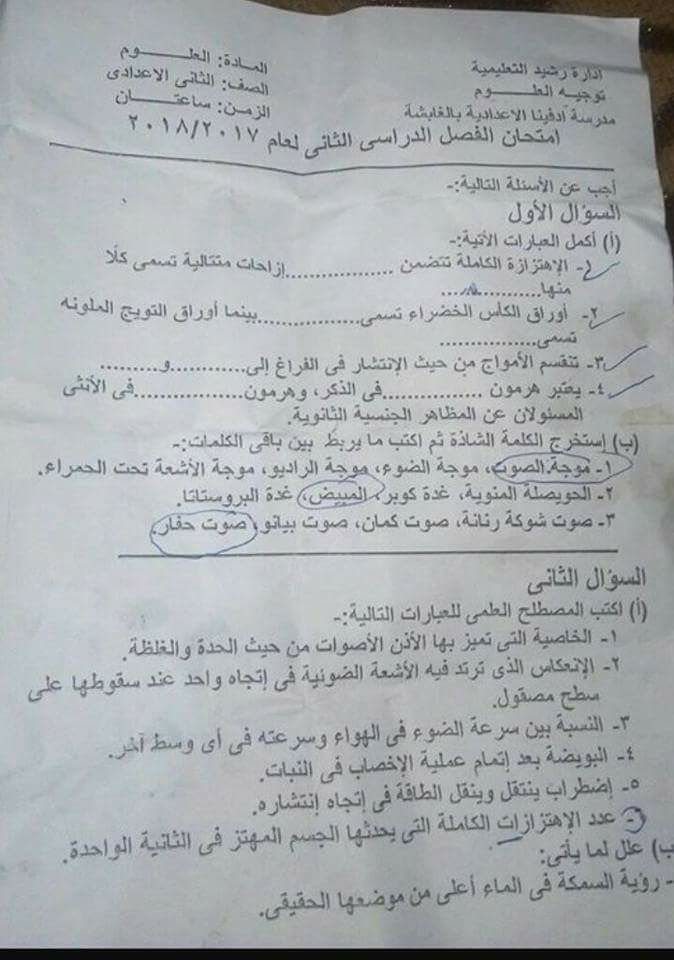 ادارة رشيد التعليمية المادة: العلـــوم
توجيه العلـــوم الصف: الثانى الاعدادى
مدرسة ادفينا الاعدادية بالغابشة الزمن: ساعتـــان
امتحان الفصل الدراسى الثانى لعام ٢٠١٨/٢٠١٧
أجب عن الأسئلة التالية:-
السؤال الأول
(أ) أكمل العبارات الأتية:-
١- الإهتزازة الكاملة تتضمن ................إزاحات متتالية تسمى كلًا
منها................
٢- أوراق الكأس الخضراء تسمى................بينما أوراق التويج الملونه
تسمى................
٣- تنقسم الأمواج من حيث الإنتشار فى الفراغ إلى............و..........
٤- يعتبر هرمون ................فى الذكر، وهرمون................فى الأنثى
المسئولان عن المظاهر الجنسية الثانوية.
(ب) إستخرج الكلمة الشاذة ثم اكتب ما يربط بين باقى الكلمات:-
١- موجة الصوت، موجة الضوء، موجة الراديو، موجة الأشعة تحت الحمراء.
٢- الحويصلة المنوية، غدة كوبر، المبيض، غدة البروستاتا.
٣- صوت شوكة رنانة، صوت كمان، صوت بيانو، صوت حفار.
السؤال الثانى
(أ) اكتب المصطلح العلمى للعبارات التالية:-
١- الخاصية التى تميز بها الأذن الأصوات من حيث الحدة والغلظة.
٢- الإنعكاس الذى ترتد فيه الأشعة الضوئية فى إتجاه واحد عند سقوطها على
سطح مصقول.
٣- النسبة بين سرعة الضوء فى الهواء وسرعته فى أى وسط آخر.
٤- البويضة بعد إتمام عملية الإخصاب فى النبات.
٥- إضطراب ينتقل وينقل الطاقة فى إتجاه إنتشاره.
٦ عدد الإهتزازات الكاملة التى يحدثها الجسم المهتز فى الثانية الواحدة.
ب) علل لما يأتى:
- رؤية السمكة فى الماء أعلى من موضعها الحقيقى.